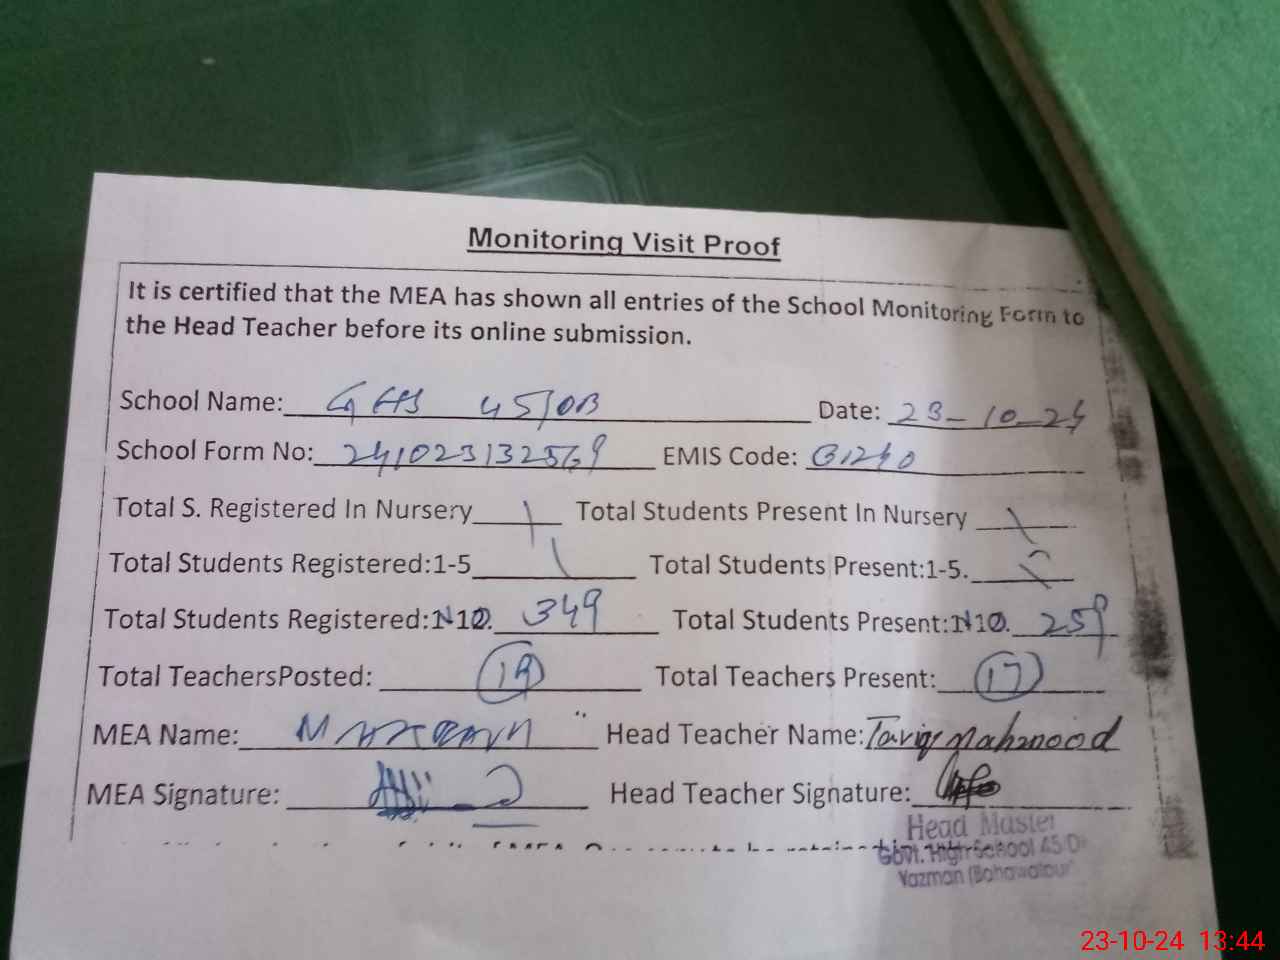 Monitoring Visit Proof
It is certified that the MEA has shown all entries of the School Monitoring Form to
the Head Teacher before its online submission.
School Name: GHS 45/DB Date: 23-10-24
School Form No: 241023132569 EMIS Code:
Total S. Registered In Nursery Total Students Present In Nursery
Total Students Registered:1-5 Total Students Present:1-5.
Total Students Registered:N10. 349 Total Students Present:N10. 259
Total TeachersPosted: 19 Total Teachers Present: 17
MEA Name: Head Teacher Name: Tariq Mahmood
MEA Signature: Head Teacher Signature:
Head Master
Govt. High School 45/D
Yazman (Bahawalpur
23-10-24 13:44